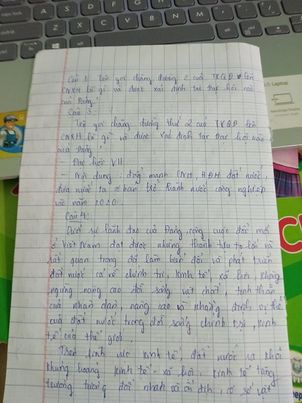 Câu 1: Tên gọi chặng đường 2 của TKQĐ lên
CNXH là gì và được xác định tại đại hội nào
của Đảng?
Câu 3
Tên gọi chặng đường thứ 2 của TKQĐ lên
CNXH là gì và được xác định tại đại hội nào
của Đảng?
- Đại hội VII
- Nội dung: đẩy mạnh CNH, HĐH đất nước
đưa nước ta cơ bản trở thành nước công nghiệp
vào năm 2020
Câu 4:
Dưới sự lãnh đạo của Đảng, công cuộc đổi mới
ở Việt Nam đạt được những thành tựu to lớn và
rất quan trọng đã làm biến đổi và phát triển
đất nước cả về chính trị, kinh tế, xã hội không
ngừng nâng cao đời sống vật chất, tinh thần
của nhân dân, nâng cao và khẳng định vị thế
của đất nước trong đời sống chính trị, kinh
tế của thế giới.
Trên lĩnh vực kinh tế, đất nước ra khỏi
khủng hoảng kinh tế - xã hội, kinh tế tăng
trưởng tương đối nhanh và ổn định, cơ sở vật